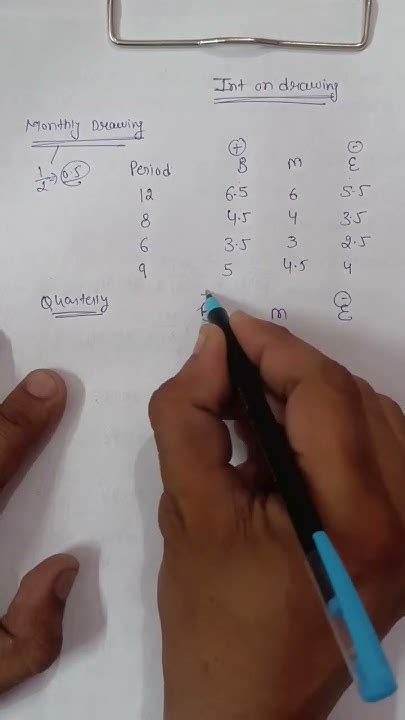 Int on drawing
Monthly Drawing
1/2 → 0.5
+ −
Period B M E
12 6.5 6 5.5
8 4.5 4 3.5
6 3.5 3 2.5
9 5 4.5 4
Quarterly
−
m E